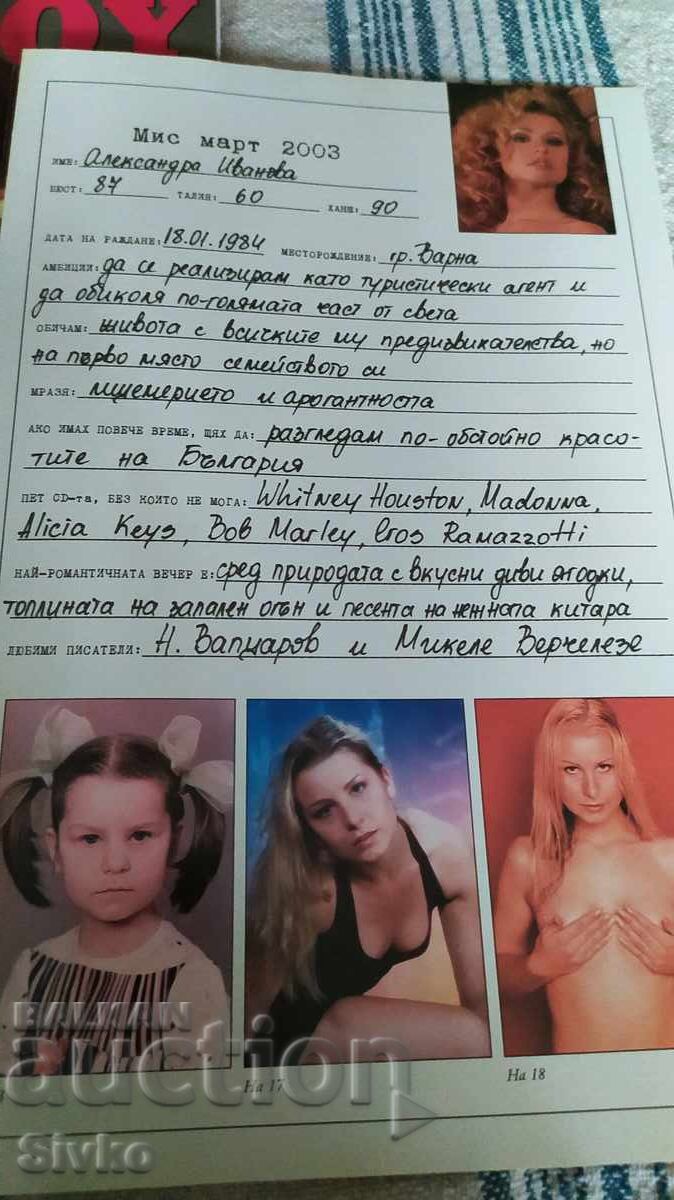 OY
Мис март 2003
ИМЕ: Александра Иванова
БЮСТ: 87 ТАЛИЯ: 60 ХАНШ: 90
ДАТА НА РАЖДАНЕ: 18.01.1984 МЕСТОРОЖДЕНИЕ: гр. Варна
АМБИЦИИ: да се реализирам като туристически агент и
да обиколя по-голямата част от света
ОБИЧАМ: живота с всичките му предизвикателства, но
на първо място семейството си
МРАЗЯ: лицемерието и арогантността
АКО ИМАХ ПОВЕЧЕ ВРЕМЕ, ЩЯХ ДА: разгледам по-обстойно красо-
тите на България
ПЕТ CD-та, БЕЗ КОИТО НЕ МОГА: Whitney Houston, Madonna,
Alicia Keys, Bob Marley, Eros Ramazzotti
НАЙ-РОМАНТИЧНАТА ВЕЧЕР Е: сред природата с вкусни диви ягодки,
топлината на запален огън и песента на нежната китара
ЛЮБИМИ ПИСАТЕЛИ: Н. Вапцаров и Микеле Верчелезе
На 17
На 18
BALKAN
auction
Sivko